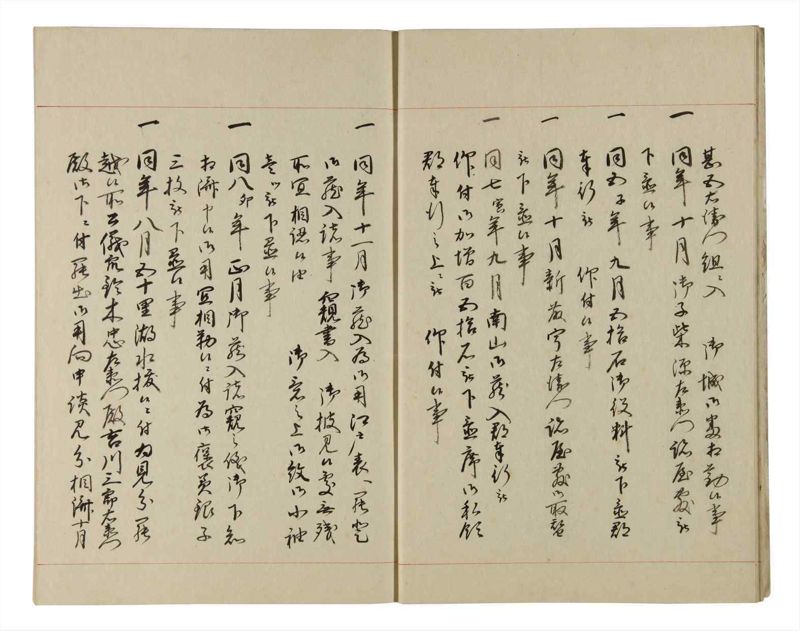 甚五左衛門組ニ入 御城御番相勤候事
一 同年十月御子柴源左衛門跡屋敷被
下置候事
一 同五子年九月五拾石御役料被下置郡
奉行被 仰付候事
一 同年十月新夢宇左衛門跡屋敷御取替
被下置候事
一 同七寅年九月南山御蔵入郡奉行被
仰付御加増百五拾石被下置席御私領
郡奉行之上ニ被 仰付候事
一 同年十一月御蔵入為御用江戸表へ罷登
御蔵入諸事 窺書入 御披見候処無残
所宜相認候由 御意之上御紋御小袖
壱ツ被下置候事
一 同八卯年正月御蔵入諸窺之儀御下知
相済申候御用宜相勤候ニ付為御褒美銀子
三枚被下置候事
一 同年八月五十里湖水抜候ニ付為見分罷
越候所公儀衆鈴木忠左衛門殿吉川三郎右衛門
殿御下ニ付罷出御用向申談見分相済十月